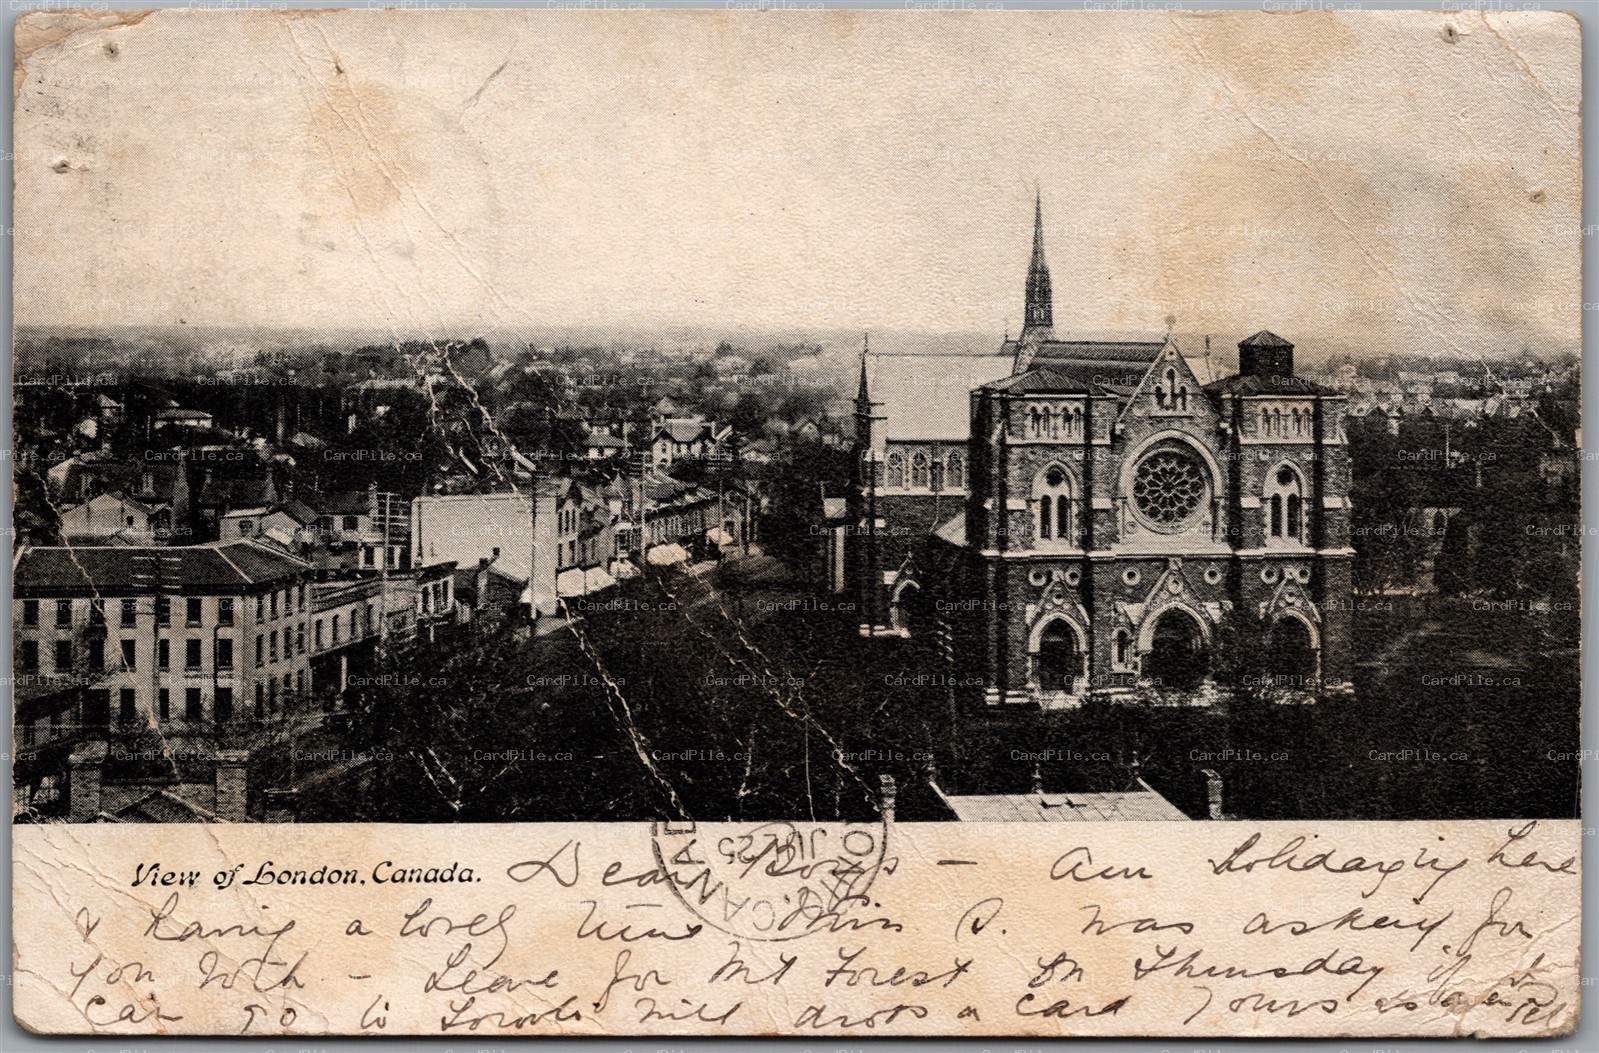 View of London, Canada.
Dear Boys - Am holidaying here
& having a lovely time Miss S. was asking for
you both - Leave for Mt Forest on Thursday if I
can go to Toronto will drop a card Yours as ever
CANADA
JU 25